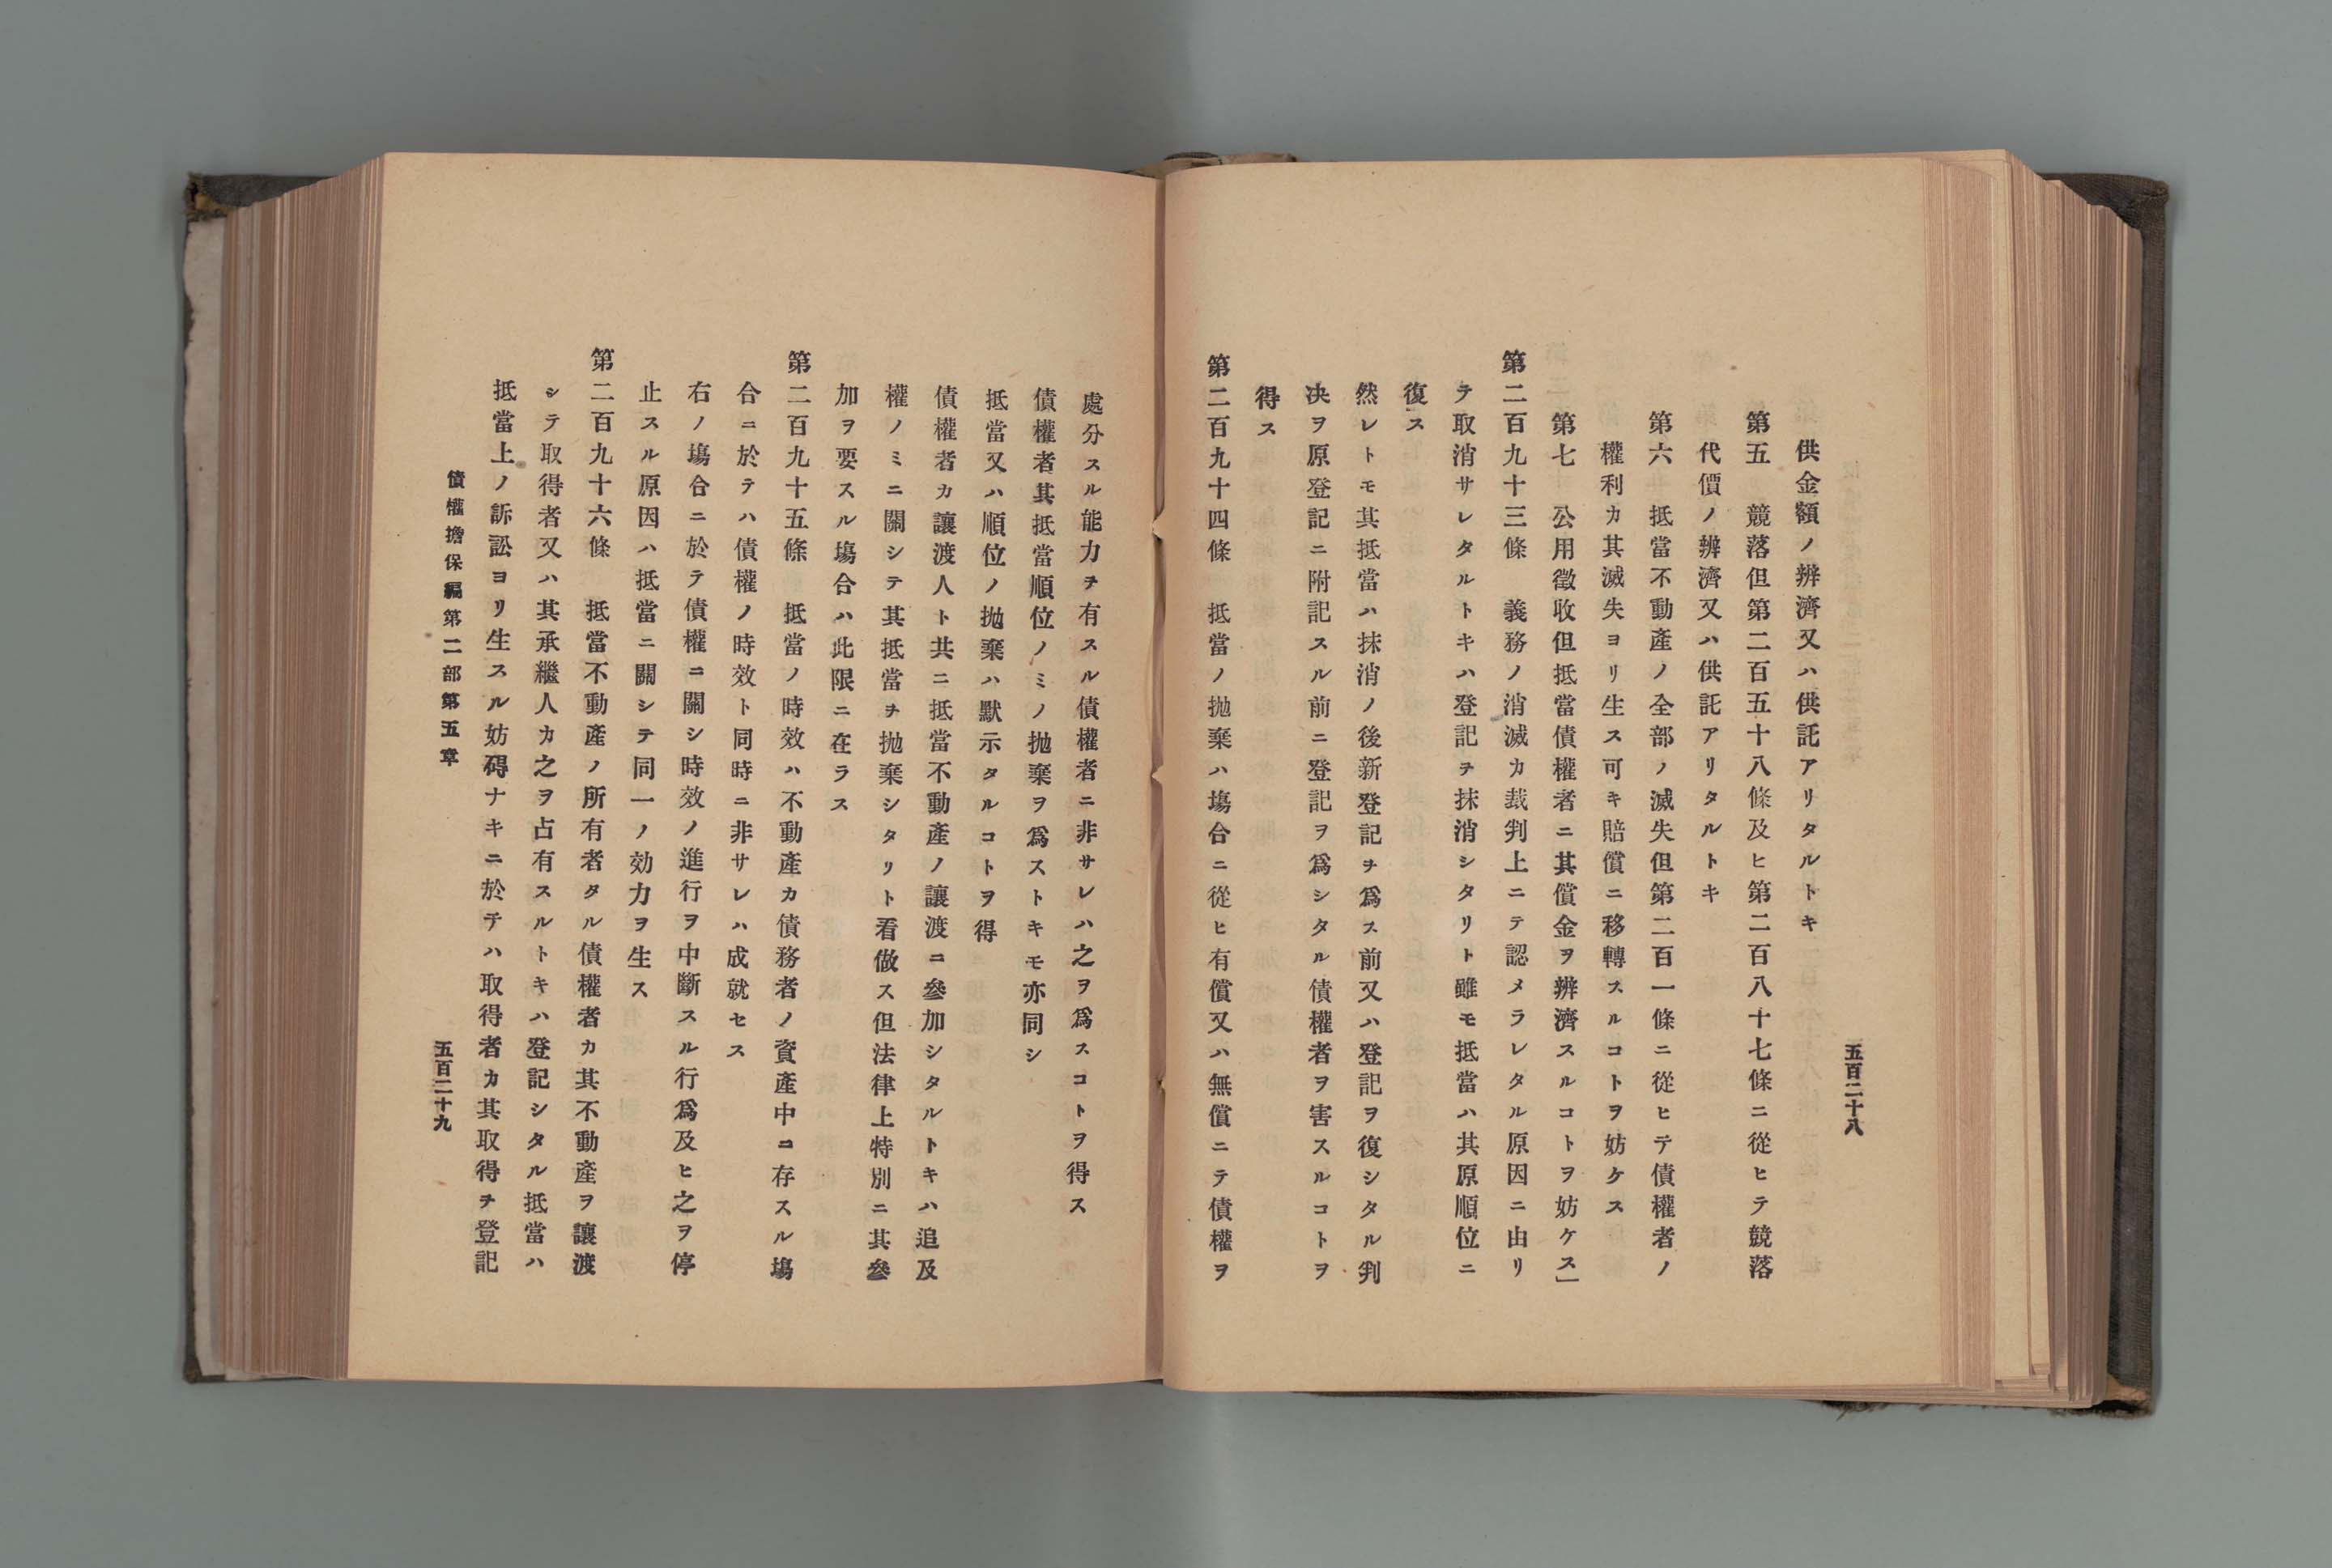 五百二十八
供金額ノ辨濟又ハ供託アリタルトキ
第五　競落但第二百五十八條及ヒ第二百八十七條ニ從ヒテ競落
代價ノ辨濟又ハ供託アリタルトキ
第六　抵當不動產ノ全部ノ滅失但第二百一條ニ從ヒテ債權者ノ
權利カ其滅失ヨリ生ス可キ賠償ニ移轉スルコトヲ妨ケス
第七　公用徵收但抵當債權者ニ其償金ヲ辨濟スルコトヲ妨ケス」
第二百九十三條　義務ノ消滅カ裁判上ニテ認メラレタル原因ニ由リ
テ取消サレタルトキハ登記ヲ抹消シタリト雖モ抵當ハ其原順位ニ
復ス
然レトモ其抵當ハ抹消ノ後新登記ヲ爲ス前又ハ登記ヲ復シタル判
决ヲ原登記ニ附記スル前ニ登記ヲ爲シタル債權者ヲ害スルコトヲ
得ス
第二百九十四條　抵當ノ抛棄ハ塲合ニ從ヒ有償又ハ無償ニテ債權ヲ
處分スル能力ヲ有スル債權者ニ非サレハ之ヲ爲スコトヲ得ス
債權者其抵當順位ノミノ抛棄ヲ爲ストキモ亦同シ
抵當又ハ順位ノ抛棄ハ默示タルコトヲ得
債權者カ讓渡人ト共ニ抵當不動產ノ讓渡ニ參加シタルトキハ追及
權ノミニ關シテ其抵當ヲ抛棄シタリト看做ス但法律上特別ニ其參
加ヲ要スル塲合ハ此限ニ在ラス
第二百九十五條　抵當ノ時效ハ不動產カ債務者ノ資產中ニ存スル塲
合ニ於テハ債權ノ時效ト同時ニ非サレハ成就セス
右ノ塲合ニ於テ債權ニ關シ時效ノ進行ヲ中斷スル行爲及ヒ之ヲ停
止スル原因ハ抵當ニ關シテ同一ノ効力ヲ生ス
第二百九十六條　抵當不動產ノ所有者タル債權者カ其不動產ヲ讓渡
シテ取得者又ハ其承繼人カ之ヲ占有スルトキハ登記シタル抵當ハ
抵當上ノ訴訟ヨリ生スル妨碍ナキニ於テハ取得者カ其取得ヲ登記
債權擔保編第二部第五章
五百二十九